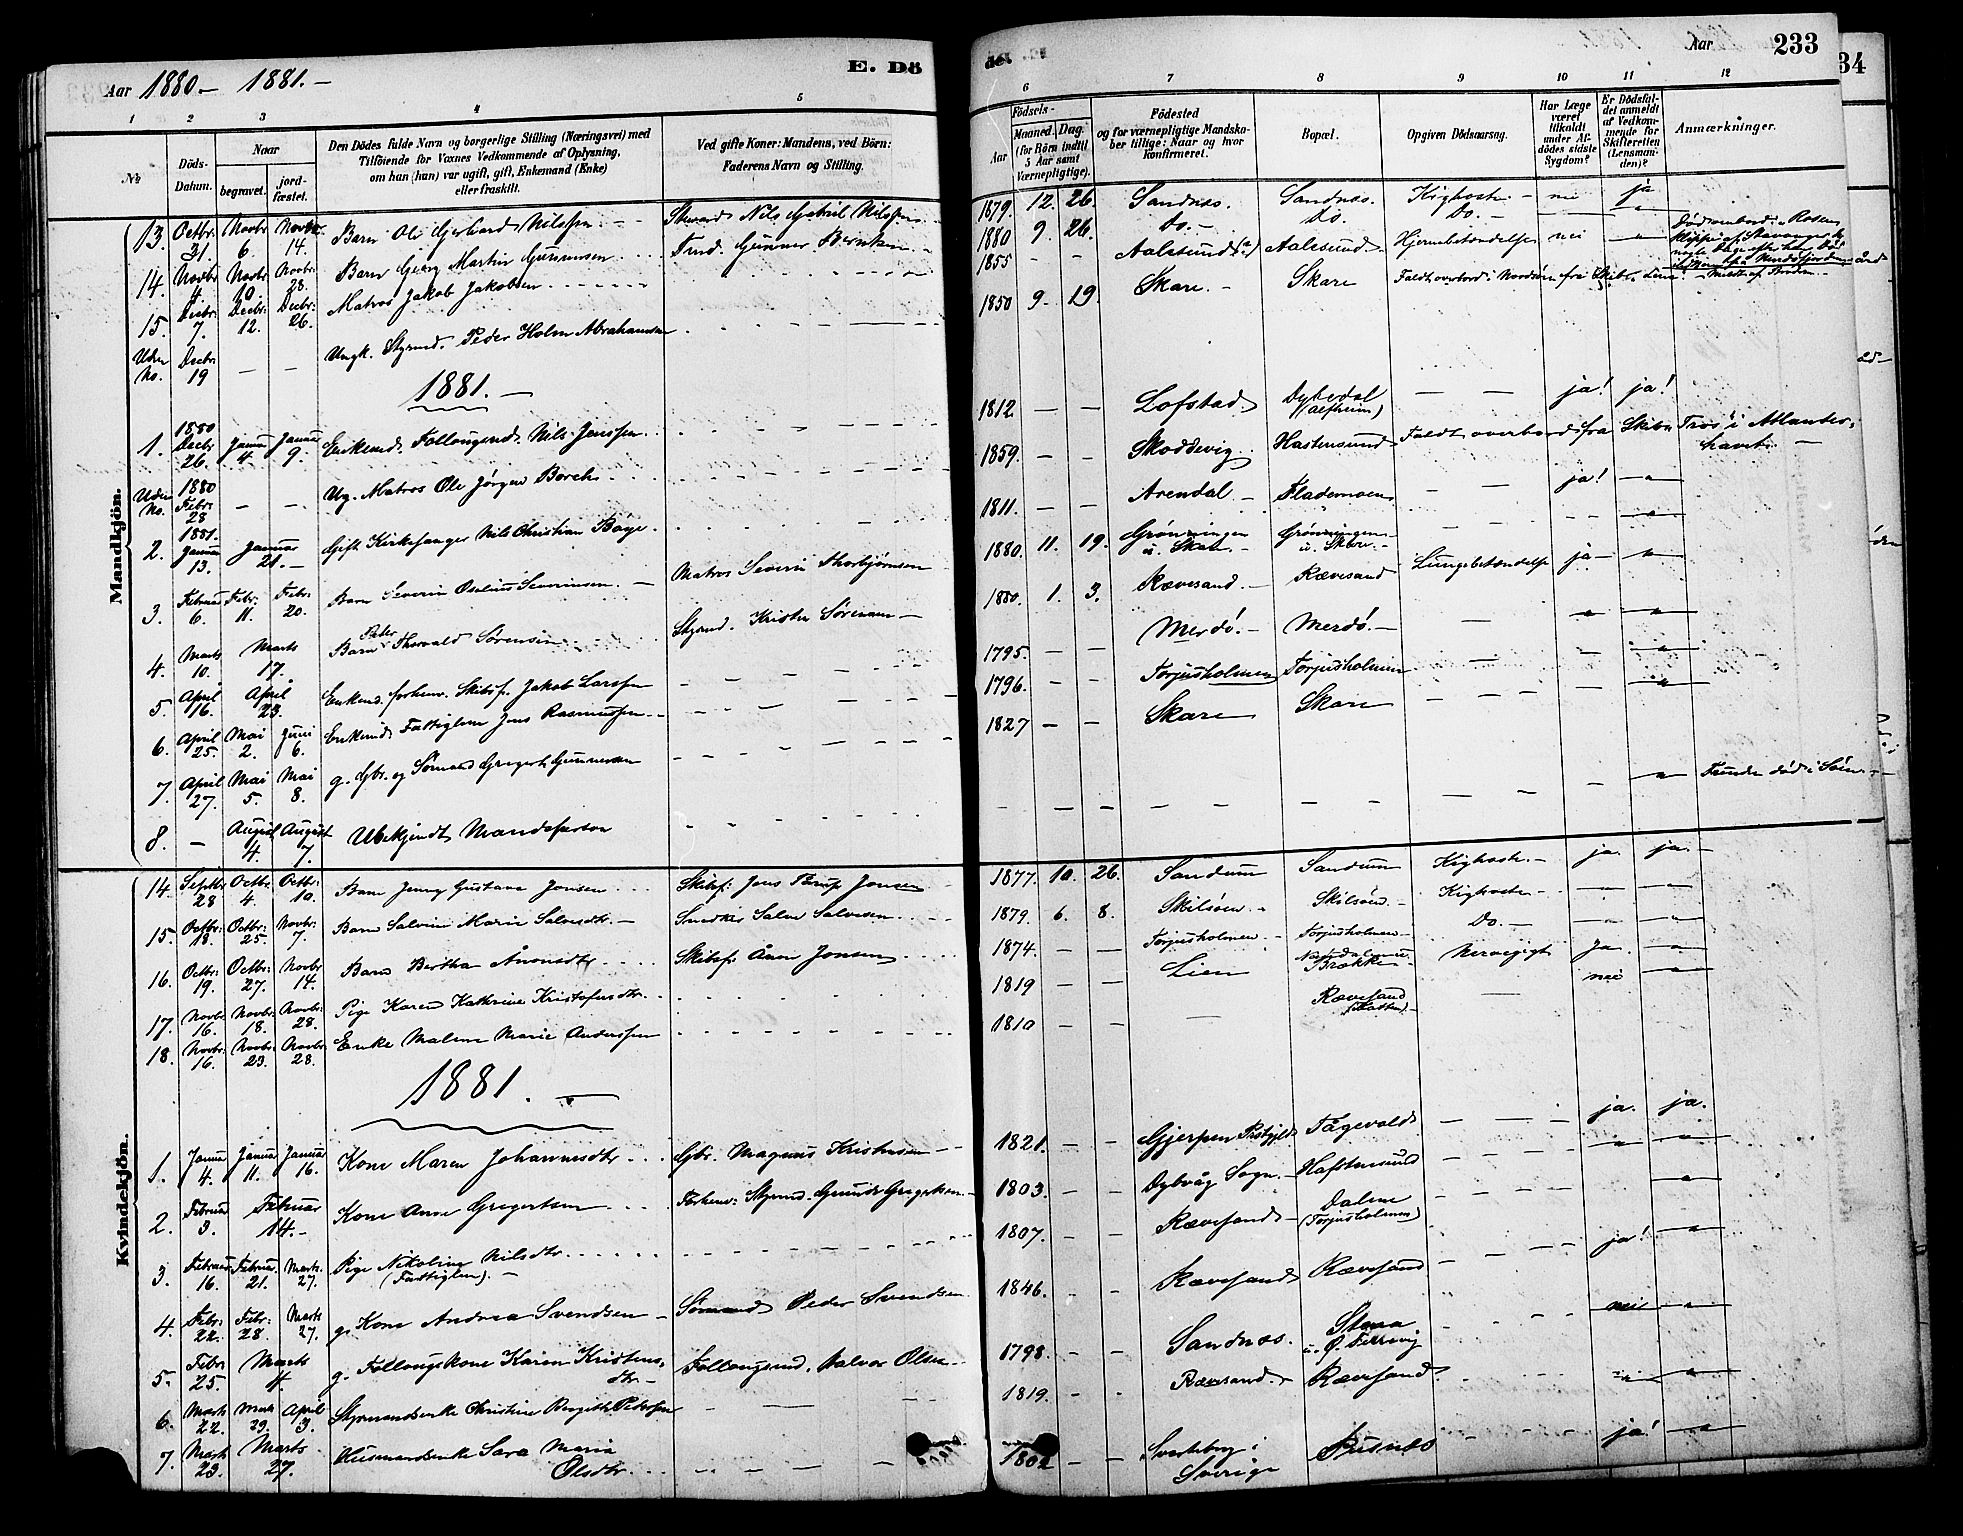 Aar 1880 - 1881. -
E. Dö
de.
Aar
233
34
1 2 3 4 5
6 7 8 9 10 11 12
№
Döds-Datum.
Naar
begravet.
jord-fæstet.
Den Dödes fulde Navn og borgerlige Stilling (Næringsvei) med
Tilföiende for Voxnes Vedkommende af Oplysning,
om han (hun) var ugift, gift, Enkemand (Enke)
eller fraskilt.
Ved gifte Koner: Mandens, ved Börn:
Faderens Navn og Stilling.
Födsels-
Aar
Maaned. Dag.
(for Börn indtil 5 Aar samt Værnepligtige).
Födested
og for værnepligtige Mandska-
ber tillige: Naar og hvor
konfirmeret.
Bopæl.
Opgiven Dödsaarsag.
Har Læge været tilkaldt under Af-dödes sidste Sygdom?
Er Dödsfal-det anmeldt af Vedkom-mende for Skifteretten (Lensman-den)?
Anmærkninger.
Mandkjön.
13. Octbr. 31 Novbr 6. Novbr 14. Barn Ole Gerhard Nilssen Steward Nils Gabriel Nilssen 1879. 12. 26. Sandnæs. Sandnæs. Kighoste - nei ja
14. Novbr 4 10. Novbr. 28. Barn Georg Martin Gunnersen Tmd. Gunner Berntsen 1880 9. 26. do. - do. do. -
15. Decbr. 7. Decbr. 12. Decbr. 26. Matros Jakob Jakobsen 1855 - - Aalesund(?) Aalesund Hjernebetændelse nei
Uden No. Decbr. 19 - - Ungk. Styrmd. Peder Holm Abrahamsen 1850 9. 19. Skare. - Skare Faldt overbord i Nordsøen fra Skibr.
1881. -
1. 1880 Decbr 26. Januar 4. Januar 9. Enkemd. Follougsmd. Nils Jenssen 1812 - - Lofstad. Dybedal (Alfheim) - - ja! ja!
Uden No. 1880 Febr. 28 - - Ug. Matros Ole Jørgen Borch 1859. - - Skoddevig. Hastensund Faldt overbord fra Skibr Tros i Atlanter-
havet. -
2. 1881. Januar 13. Januar 21. - Gift Kirkesanger Nils Christian Boye 1811. - - Arendal. - Fladenoen - - ja!
3. Februar 6. Febr. 11. Febr. 20. Barn Severin Oselius Severinsen. - Matros Severin Thorbjørnsen 1880. 11. 19. Grønningen u. Skare. - Grønningen u. Skare. -
4. Marts 10. Marts 17. Barn Peter Thorvald Sørensen Styrmd. Krister Sørensen - 1880. 1. 3. Rævesand. - Rævesand Lungebetændelse ja -
5. April 16. April 23. Enkemd. forhenv. Skibsf. Jakob Larssen 1795. - - Merdö. - Merdö. -
6. April 25. Mai 2. Juni 6. Enkemd. Fattiglem Jens Rasmussen 1796. - - Torjusholmen Torjusholmen
7. April 27. Mai 5. Mai 8. g. Gbr. og Sømand Gregert Gunnersen 1827 - - Skare Skare
8. - August 4. August 7. Ubekjendt Mandsperson - - - Funden død i Søen. -
Kvindekjön.
14. Septbr 28 Octbr. 4. Octbr: 10. Barn Jenny Gustava Jonsen Skibsf: Jens Terup Jonsen 1877. 10. 26. Sandum Sandum Kighoste. - ja. ja. -
15. Octbr: 18. Octbr: 25. Novbr: 7. Barn Salvine Marie Salvesdtr. - Snedker Salve Salvesen 1879. 6. 8. Skilsöen. - Skilsöen. - Kighoste -
16. Octbr: 19. Octbr: 27. Novbr 14. Barn Bertha Aanonsdtr Skibsf: Aanon Jonsen 1874. - - Torjusholmen. - Torjusholmen - Do. -
17. Novbr 16. Novbr. 18. Novbr. 28. Pige Karen Kathrine Kristofersdtr. 1819 - - Lien Brække - Nervegigt ja.
18. Novbr: 16. Novbr: 23. Novbr: 28. Enke Malene Marie Anderssen 1810 - - - Rævesand - nei
1881. -
1. Januar 4. Januar 11. Januar 16. Kone Maren Johannesdtr Gbr. Magnus Kristensen - 1821. - - Gjerpen Præstgjeld Tagevold - ja. ja.
2. Februar 3. Februar 14. - Kone Anne Gregertsen Forhenv: Styrmd. Gunder Gregertsen. - 1803. - - Dybvåg Sogn. - Hafstensund
3. Februar 16. Februar 21. Marts. 27. Pige Nikoline Nilsdtr (Fattiglem). - 1807. - - Rævesand - Dalene (Torjusholmen)
4. Febr: 22. Febr: 28. Marts 27. g. Kone Andrea Svendsen - Sømand Peder Svendsen 1846. - - Rævesand Rævesand ja!
5. Febr 25. Marts 4. g. Follougskone Karen Kristens-
dtr. - Follougsmd. Halvor Olsen 1798. - - Sandnæs. Stena u. Ø. Tervvig nei
6. Marts 22. Marts 29. April 3. Styrmandsenke Christine Birgitte Petersen 1819. - - Rævesand. Rævesand.
7. Marts 23. Marts 27. Husmandsenke Sara Maria
Olsdtr. 1802 - - Svarteborg i Sverige Pusnæs ja!